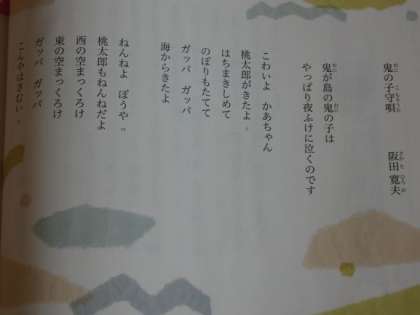 鬼の子守唄
阪田寛夫
鬼が島の鬼の子は
やっぱり夜ふけに泣くのです
こわいよ かあちゃん
桃太郎がきたよ。
はちまきしめて
のぼりもたてて
ガッパ ガッパ
海からきたよ
ねんねよ ぼうや。
桃太郎もねんねだよ
西の空まっくろけ
東の空まっくろけ
ガッパ ガッパ
こんやはさむい。